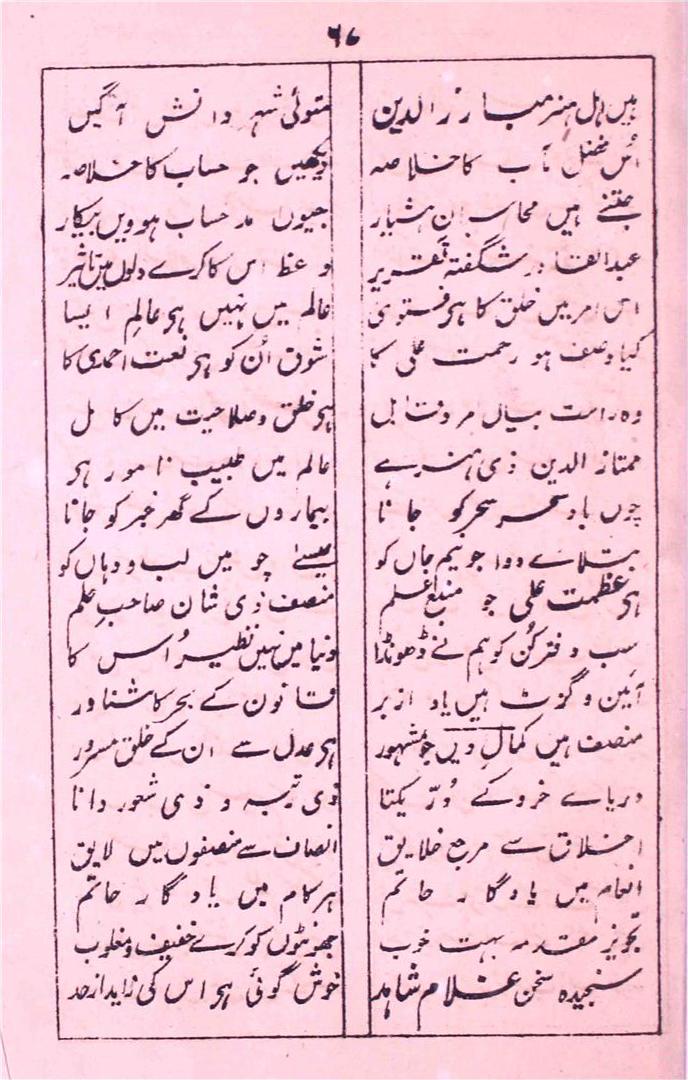 ۶۷
ہیں اہل ہنر مبارز الدین متوئی شہر دانش آگیں
اُس فضل مآب کا خلاصہ دیکھیں جو حساب کا خلاصہ
جتنے ہیں محاسبان ہشیار جیوں مد حساب ہوویں بیکار
عبدالقادر شگفتہ تقریر وعظ اس کا کرے دلوں میں تاثیر
اس امر میں خلق کا ہی فتویٰ عالم میں نہیں ہی عالمِ ایسا
کیا وصف ہو رحمت علی کا شوق اُن کو ہی نعت احمدی کا
وہ راست بیاں مرد قابل ہی خلق و صلاحیت میں کامل
ممتاز الدین ذی ہنر ہے عالم میں طبیب نامور ہی
چوں باد سحر سحر کو جانا بیماروں کے گھر خبر کو جانا
بتلاے دوا جو نیم جاں کو عیسےٰ چومیں لب و دہاں کو
ہی عظمت علی جو منبع علم منصف ذی شان صاحب علم
سب دفتر کُن کو ہم نے ڈھونڈا دنیا میں نہیں نظیر اُس کا
آئین و گزٹ ہیں یاد ازبر قانون کے بحر کا شناور
منصف ہیں کمال دیں جو مشہور ہی عدل سے ان کے خلق مسرور
دریاے خرد کے دُرّ یکتا ذی رتبہ و ذی شعور دانا
اخلاق سے مرجع خلایق انصاف سے منصفوں میں لایق
انعام میں یادگار حاتم ہر کام میں یادگار حاتم
تجویز مقدمہ بہت خوب جھوٹوں کو کرے خفیف و مغلوب
سنجیدہ سخن غلام شاہد خوش گوئی ہی اس کی زاید از حد